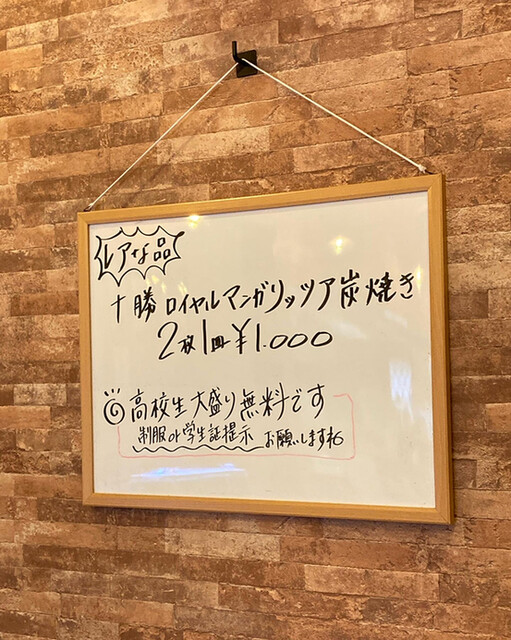 レアな品
十勝 ロイヤルマンガリッツア炭焼き
2枚1皿¥1.000
高校生大盛り無料です
制服or学生証提示 お願いしますね